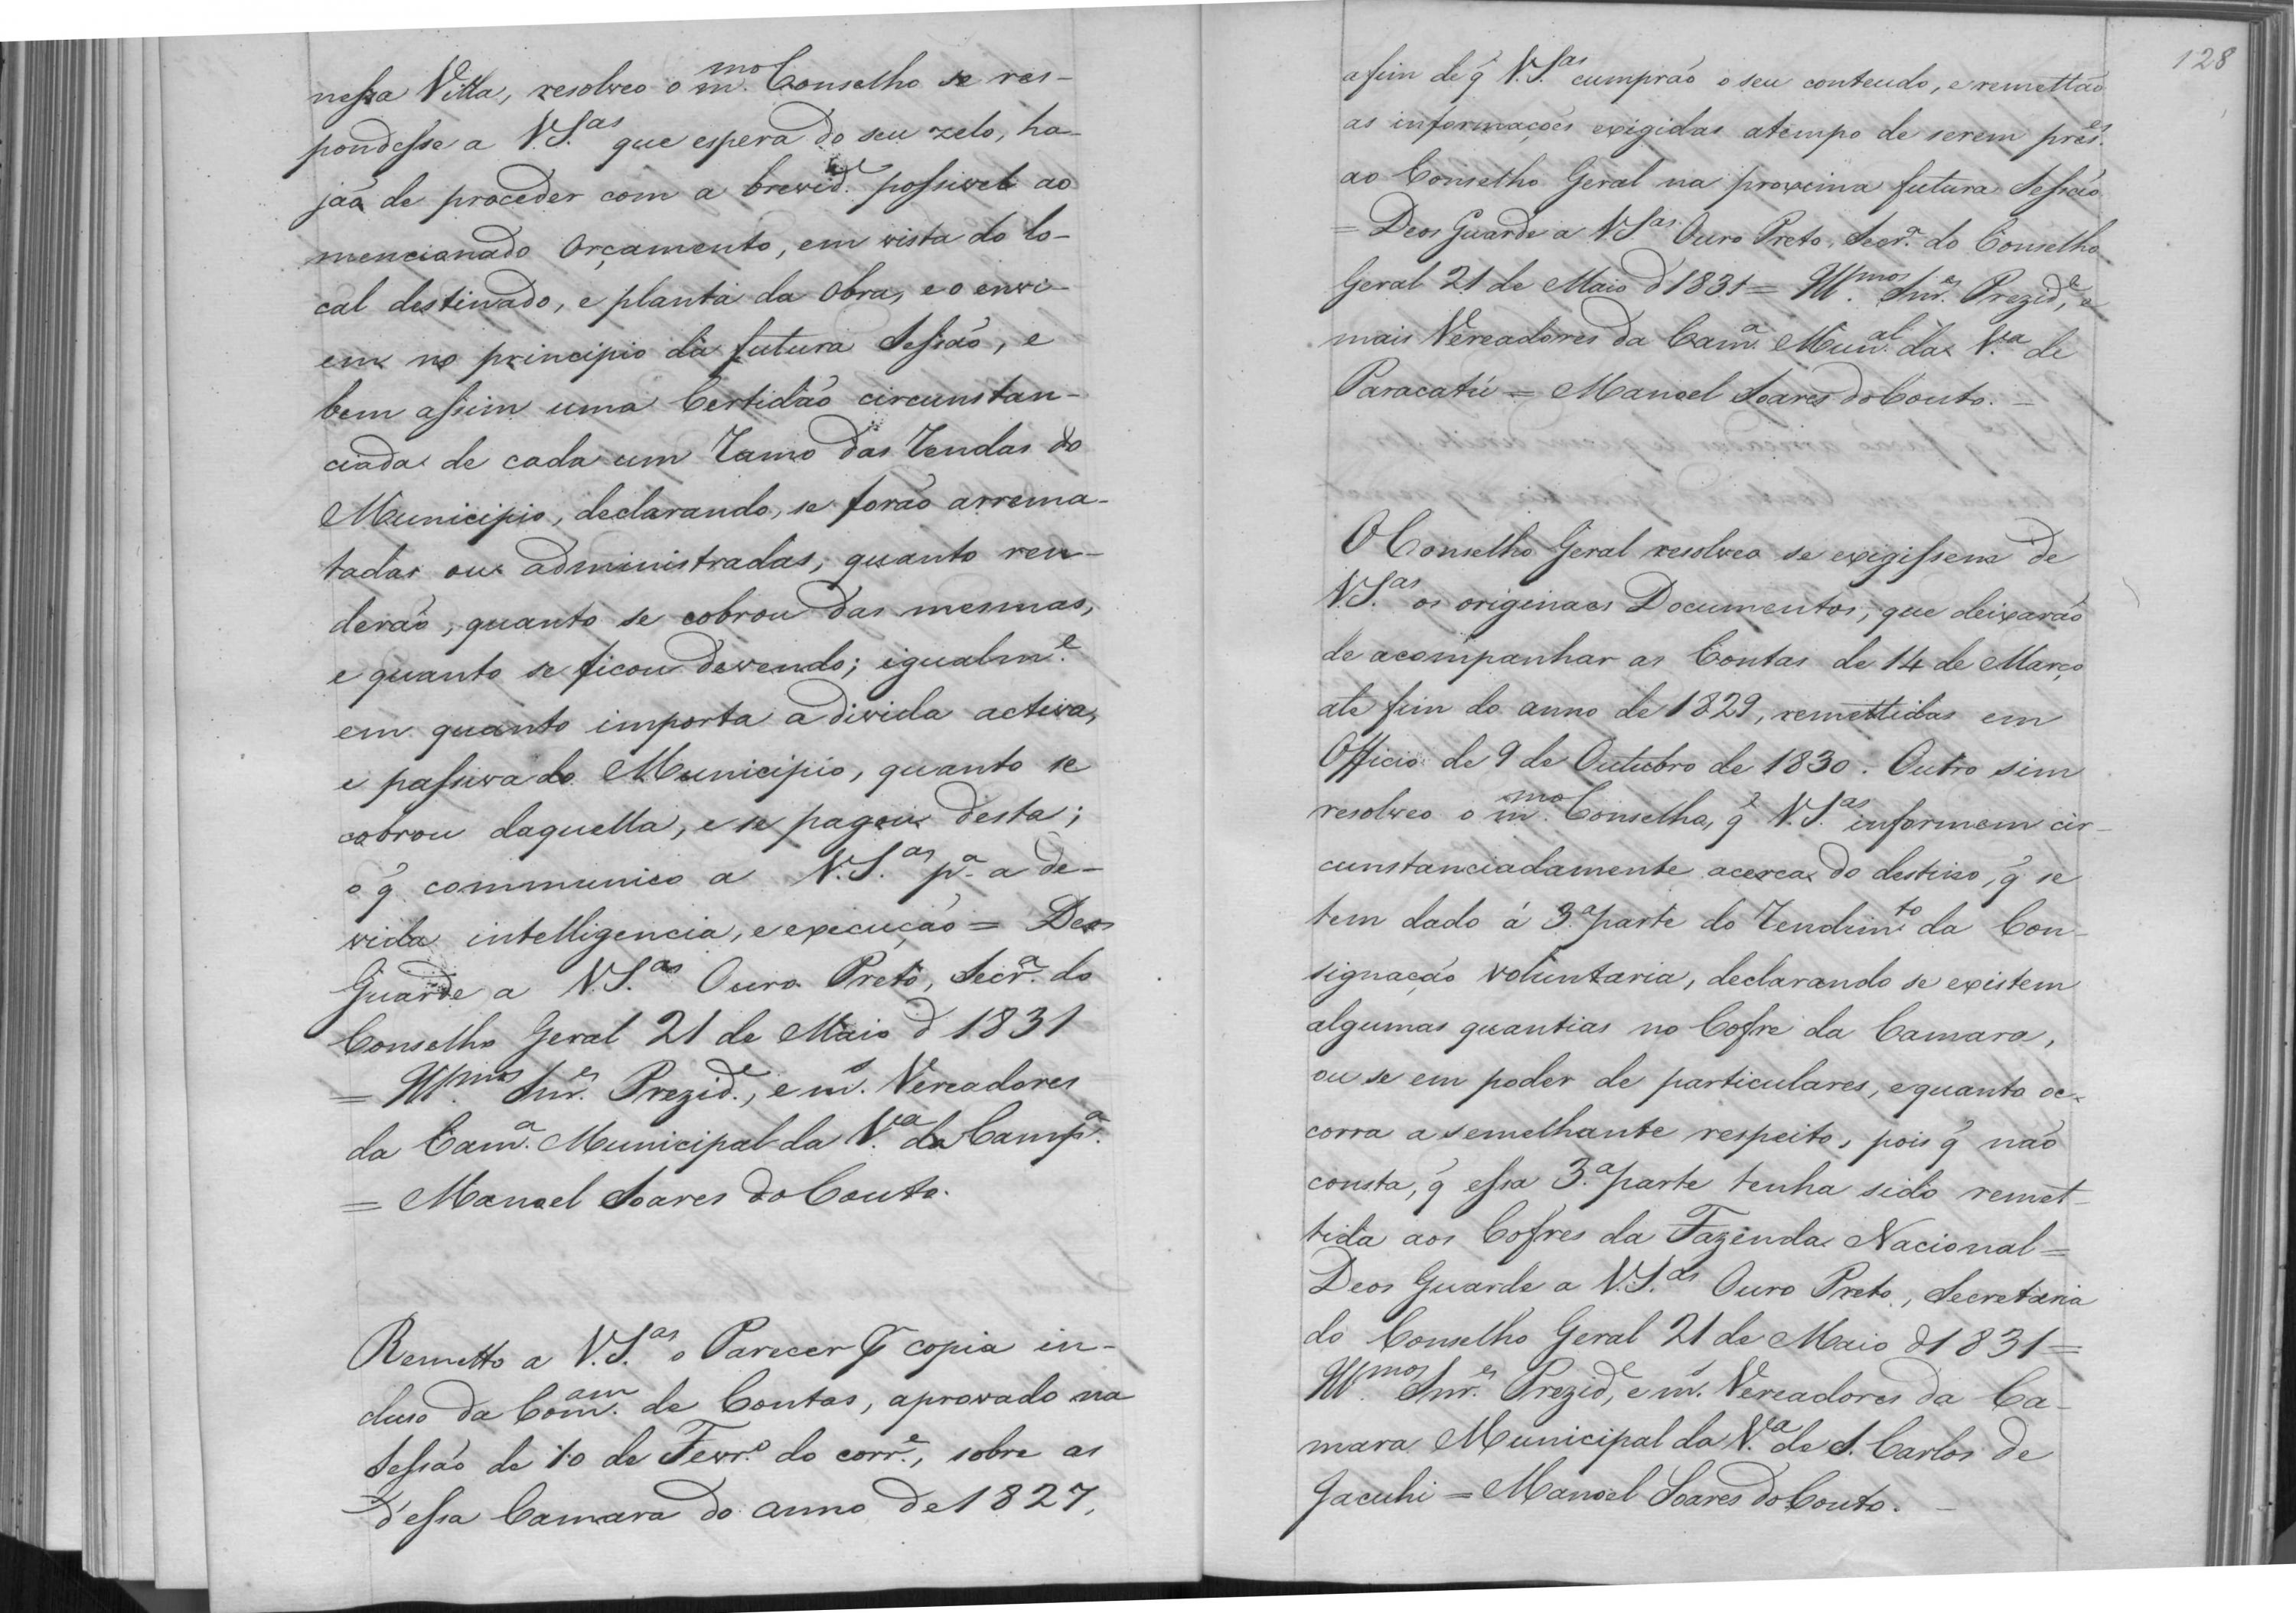 nessa Villa, resolveo o m.mo Conselho se res-
pondesse a V.S.as que espera do seu zelo, ha-
jão de proceder com a brevid.e possivel ao
mencionado Orçamento, em vista do lo-
cal destinado, e planta da Obra, e o envi-
em no principio da futura Sessão, e
bem assim uma Certidão circunstan-
ciada de cada um Ramo das Rendas do
Municipio, declarando, se forão arrema-
tadas ou administradas, quanto ren-
derão, quanto se cobrou das mesmas,
e quanto se ficou devendo; igualm.e
em quanto importa a divida activa,
e passiva do Municipio, quanto se
cobrou daquella, e se pagou desta;
o q̃ communico a V.S.as p.a a de-
vida intelligencia, e execução = Deos
Guarde a V.S.as Ouro Preto, Secr.a do
Conselho Geral 21 de Maio d 1831
= Ill.mos Snr.es Prezid.e, e m.s Vereadores
da Cam.a Municipal da V.a da Camp.a
= Manoel Soares do Couto.
Remetto a V.S.as o Parecer p̱ copia in-
cluso da Com.am de Contas, aprovado na
Sessão de 10 de Fevr.o do corr.e, sobre as
d'essa Camara do anno de 1827,
128
afim de q̃ V.S.as cumprão o seu conteudo, e remettão
as informações exigidas atempo de serem pres.es
ao Conselho Geral na proxima futura Sessão
= Deos Guarde a V.S.as Ouro Preto, Secr.a do Conselho
Geral 21 de Maio d 1831 = Ill.mos Snr.es Prezid.e, e
mais Vereadores da Cam.a Mun.al da V.a de
Paracatú = Manoel Soares do Couto. =
O Conselho Geral resolveo se exigissem de
V.S.as os originaes Documentos, que deixarão
de acompanhar as Contas de 14 de Março
ate fim do anno de 1829, remettidas em
Officio de 9 de Outubro de 1830. Outro sim
resolveo o m.mo Conselho, q̃ V.S.as informem cir-
cunstanciadamente acerca do destino, q̃ se
tem dado á 3.a parte do Rendim.to da Con-
signação voluntaria, declarando se existem
algumas quantias no Cofre da Camara,
ou se em poder de particulares, e quanto oc-
corra a semelhante respeito, pois q̃ não
consta, q̃ essa 3.a parte tenha sido remet-
tida aos Cofres da Fazenda Nacional =
Deos Guarde a V.S.as Ouro Preto, Secretaria
do Conselho Geral 21 de Maio d 1831 =
Ill.mos Snr.es Prezid.e, e m.s Vereadores da Ca-
mara Municipal da V.a de S. Carlos de
Jacuhi = Manoel Soares do Couto. =